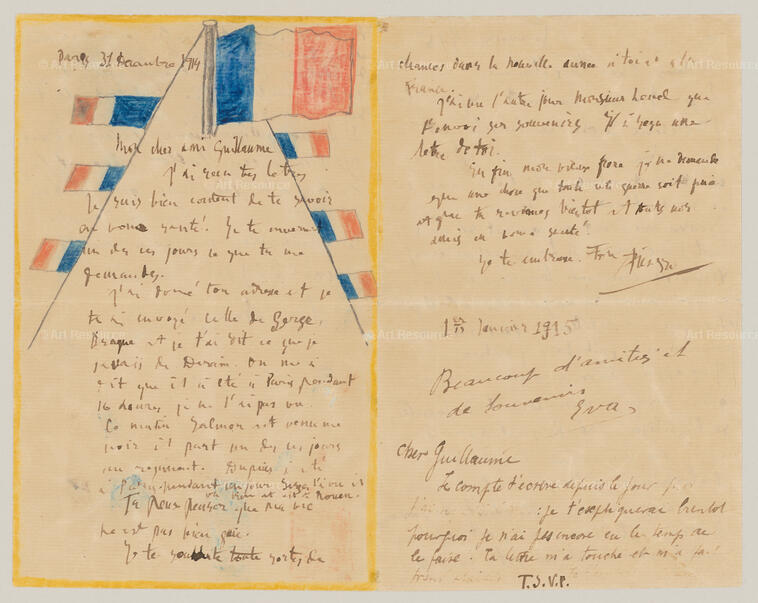 Paris 31 Decembre 1914
Mon cher ami Guillaume
J'ai reçu tes letres
Je suis bien content de te savoir
en bonne santé. Je te enverrai
un des ces jours ce que tu me
demandes.
J'ai donné ton adresse et je
te ai envoyé celle de George
Braque et je t'ai dit ce que je
savais de Derain. On me à
dit que il à eté à Paris pendant
16 heures je ne l'ai pas vu
Ce matin Salmon est venu me
voir il part un des ces jours
au regiment. à eté
à Paris pendant un jour Serge l'avu il
va bien et est à Rouen.
Tu peux penser que ma vie
ne est pas bien gaie.
Je te souhaite toute sortes de
chances dans la nouvelle annee à toi et a la
France.
J'ai vu l'autre jour Monsieur que
t'envoi ses souvenirs. Il à reçu une
letre de toi.
En fin mon vieux frere je ne demande
que une chose que toute cete guerre soit finie
et que tu revienes bientot et touts nos
amis en bonne santé.
Je te embrase. Ton Picasso
1er Janvier 1915
Beaucoup d'amities et
de Souvenirs
Eva
cher Guillaume
Je compte t'ecrire depuis le jour
: je t'expliquerai bientot
pourquoi je n'ai pas encore eu le temps de
le faire. ta lettre m'a touche et m'a
T.S.V.P.
© Art Resource
© Art Resource
© Art Resource
© Art Resource
© Art Resource
© Art Resource